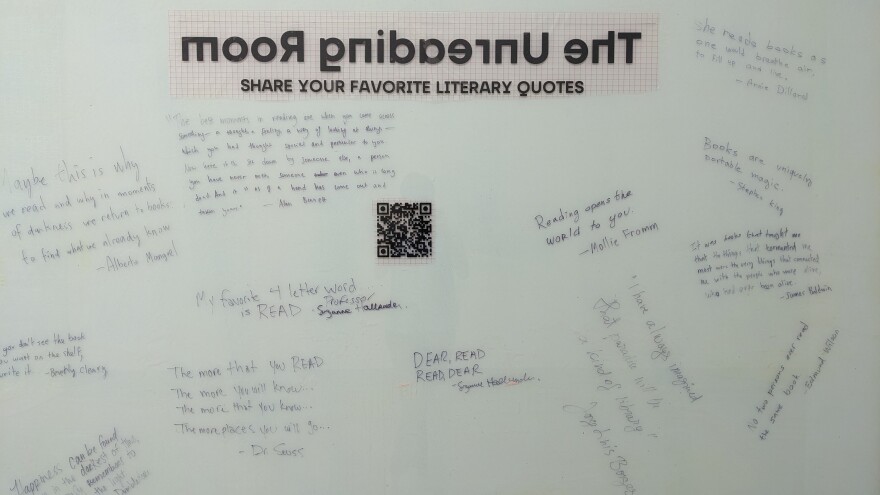 The Unreading Room
SHARE YOUR FAVORITE LITERARY QUOTES
She reads books as
one would breathe air,
to fill up and live.
- Annie Dillard
The best moments in reading are when you come across
something - a thought, a feeling, a way of looking at things -
which you had thought special and particular to you.
Now here it is, set down by someone else, a person
you have never met, someone even who is long
dead. And it is as if a hand has come out and
taken yours." - Alan Bennett
Maybe this is why
we read and why in moments
of darkness we return to books:
to find what we already know
- Alberto Manguel
Books are uniquely
portable magic.
- Stephen King
Reading opens the
WORLD TO YOU.
- Mollie Fromm
It was books that taught me
that the things that tormented me
most were the very things that connected
me with the people who were alive,
who had ever been alive.
- James Baldwin
My favorite 4 letter word
is READ - Professor
Suzanne Hallander.
you don't see the book
you want on the shelf,
write it - Beverly Cleary
The more that YOU READ
The more you will know...
The more that You know...
The more places you will go...
- Dr Seuss
DEAR, READ
READ, DEAR
- Suzanne
"I have always imagined
that paradise will be
a kind of library"
No two persons ever read
the same book
- Edmund Wilson
Happiness can be found
in the darkest of
remembers to
the light